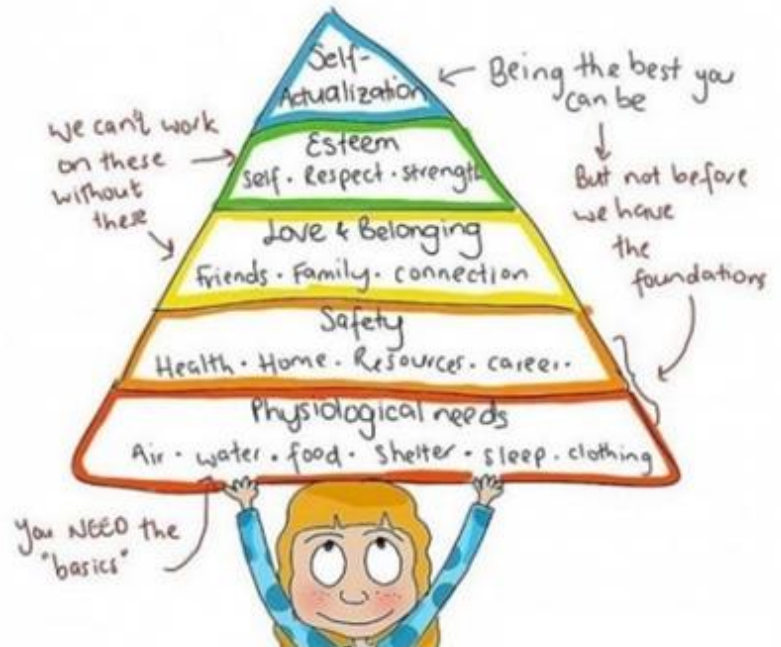 Self-
Actualization
Being the best you
can be
But not before
we have
the
foundations
we can't work
on these
without
these
Esteem
Self · Respect · strength
Love & Belonging
Friends · Family · connection
Safety
Health · Home · Resources · career·
Physiological needs
Air · water · food · Shelter · sleep · clothing
You NEED the
"basics"